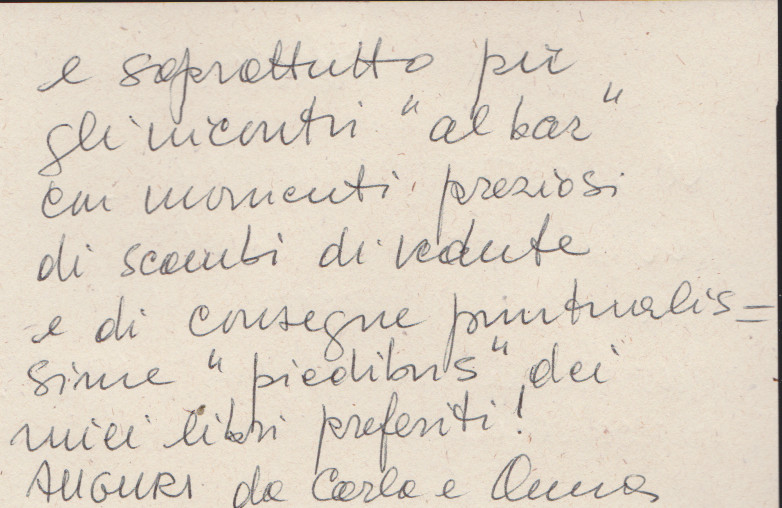 e soprattutto per
gli incontri "al bar"
con momenti preziosi
di scambi di vedute
e di consegne puntualis=
sime "piedibus" dei
miei libri preferiti!
AUGURI da Carla e